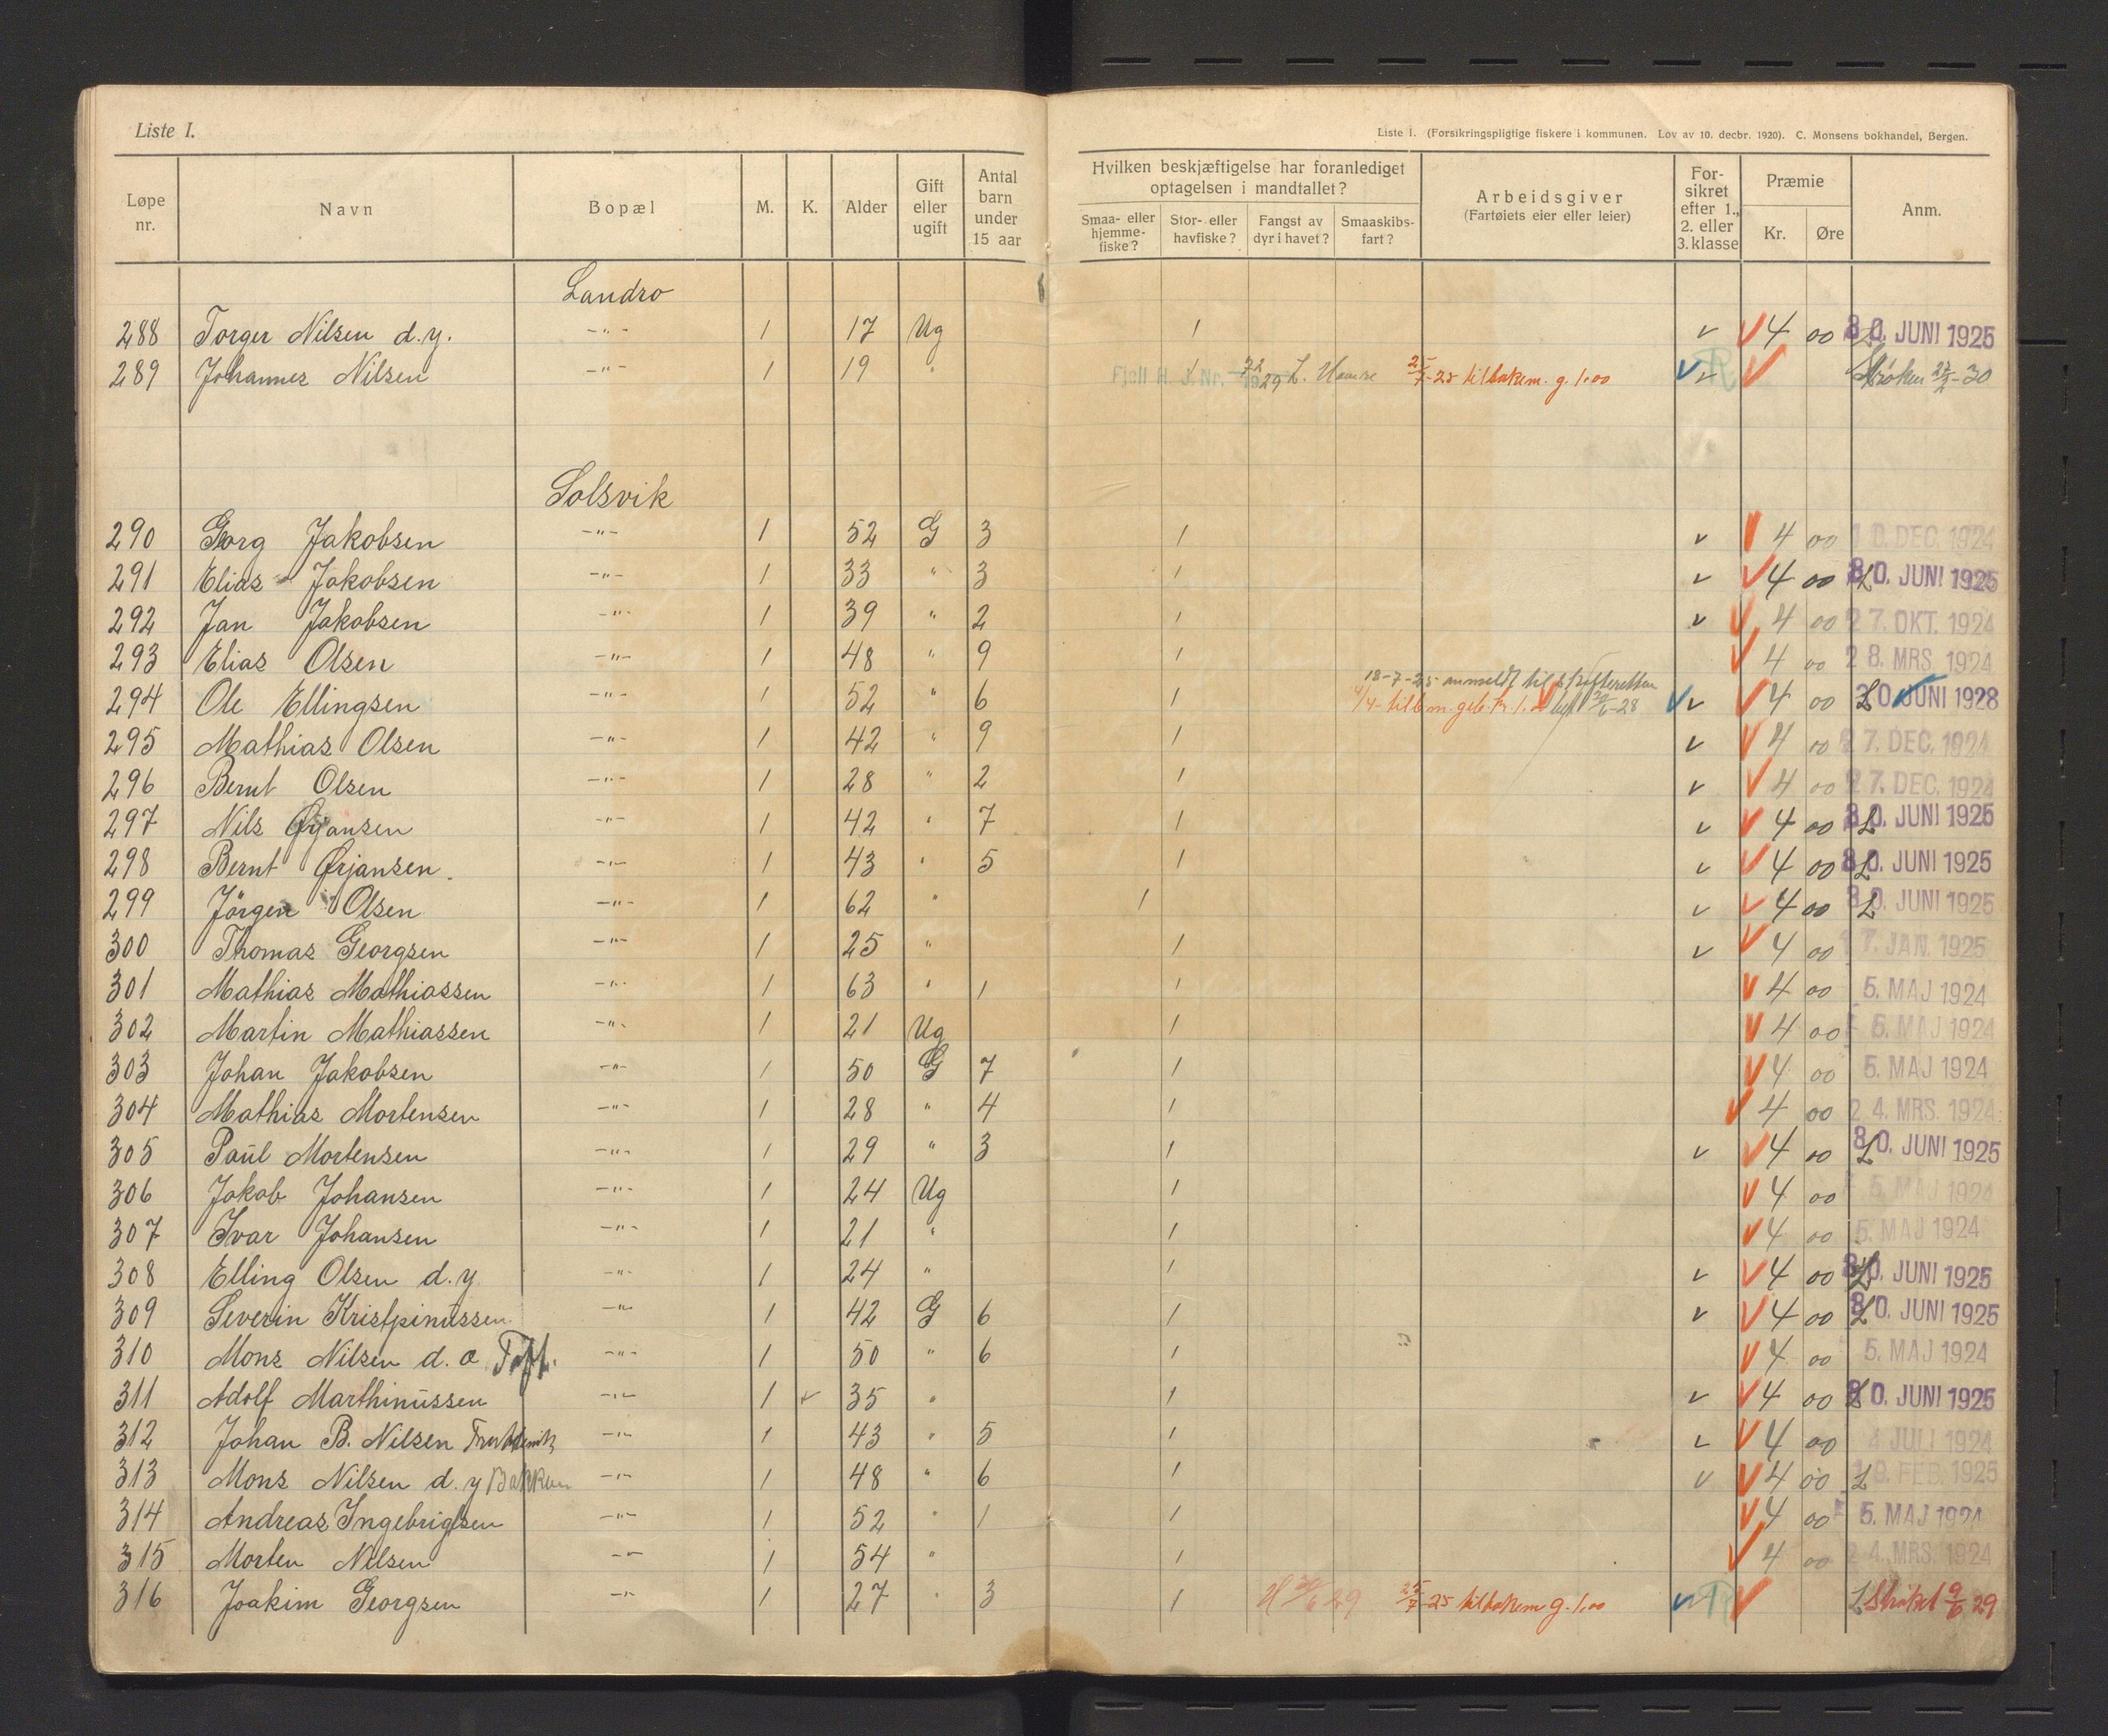 Liste I.
Liste I. (Forsikringspligtige fiskere i kommunen. Lov av 10. decbr. 1920). C. Monsens bokhandel, Bergen.
Løpe nr. Navn Bopæl M. K. Alder Gift eller ugift Antal barn under 15 aar Hvilken beskjæftigelse har foranlediget optagelsen i mandtallet? Smaa- eller hjemme-fiske? Stor- eller havfiske? Fangst av dyr i havet? Smaaskibs-fart? Arbeidsgiver (Fartøiets eier eller leier) For-sikret efter 1., 2. eller 3. klasse Præmie Kr. Øre Anm.
Landro
288 Torger Nilsen d.y. -"- 1 17 Ug 1 v V 4 00 30. JUNI 1925
289 Johannes Nilsen -"- 1 19 " Fjell H. J. Nr. 1 29 25/7-25 tilbakem. g. 1.00 v V Strøken 27/2-30
Solsvik
290 Georg Jakobsen -"- 1 52 G 3 1 v V 4 00 DEC. 1924
291 Elias Jakobsen -"- 1 33 " 3 1 v V 4 00 L 30. JUNI 1925
292 Jan Jakobsen -"- 1 39 " 2 1 v V 4 00 27. OKT. 1924
293 Elias Olsen -"- 1 48 " 9 1 V 4 00 28. MRS. 1924
294 Ole Ellingsen -"- 1 52 " 6 1 18-7-25 anmeldt til 4/4- v V 4 00 L 30 JUNI 1928
295 Mathias Olsen -"- 1 42 " 9 1 v V 4 00 27. DEC. 1924
296 Bernt Olsen -"- 1 28 " 2 1 v V 4 00 27. DEC. 1924
297 Nils Ørjansen -"- 1 42 " 7 1 v V 4 00 L 30. JUNI 1925
298 Bernt Ørjansen. -"- 1 43 " 5 1 v V 4 00 L 30. JUNI 1925
299 Jörgen Olsen -"- 1 62 " 1 v V 4 00 L 30. JUNI 1925
300 Thomas Georgsen -"- 1 25 " 1 v V 4 00 7. JAN. 1925
301 Mathias Mathiassen -"- 1 63 " 1 1 V 4 00 5. MAJ 1924
302 Martin Mathiassen -"- 1 21 Ug 1 V 4 00 5. MAJ 1924
303 Johan Jakobsen -"- 1 50 G 7 1 V 4 00 5. MAJ 1924
304 Mathias Mortensen -"- 1 28 " 4 1 V 4 00 24. MRS. 1924
305 Paul Mortensen -"- 1 29 " 3 1 v V 4 00 L 30. JUNI 1925
306 Jakob Johansen -"- 1 24 Ug 1 V 4 00 5. MAJ 1924
307 Ivar Johansen -"- 1 21 " 1 V 4 00 5. MAJ 1924
308 Elling Olsen d.y. -"- 1 24 " 1 v V 4 00 L 30. JUNI 1925
309 Severin Kristpinussen -"- 1 42 G 6 1 v V 4 00 L 30. JUNI 1925
310 Mons Nilsen d. æ -"- 1 50 " 6 1 V 4 00 5. MAJ 1924
311 Adolf Marthinussen -"- 1 v 35 " 1 v V 4 00 L 30. JUNI 1925
312 Johan B. Nilsen -"- 1 43 " 5 1 v V 4 00 4 JULI 1924
313 Mons Nilsen d. y Bakken -"- 1 48 " 6 1 v V 4 00 L FEB. 1925
314 Andreas Ingebrigtsen -"- 1 52 " 1 1 V 4 00 5. MAJ 1924
315 Morten Nilsen -"- 1 54 " 1 V 4 00 24. MRS. 1924
316 Joakim Georgsen -"- 1 27 " 3 1 29 25/7-25 tilbakem g. 1.00 v V L Strøket 9/6 29